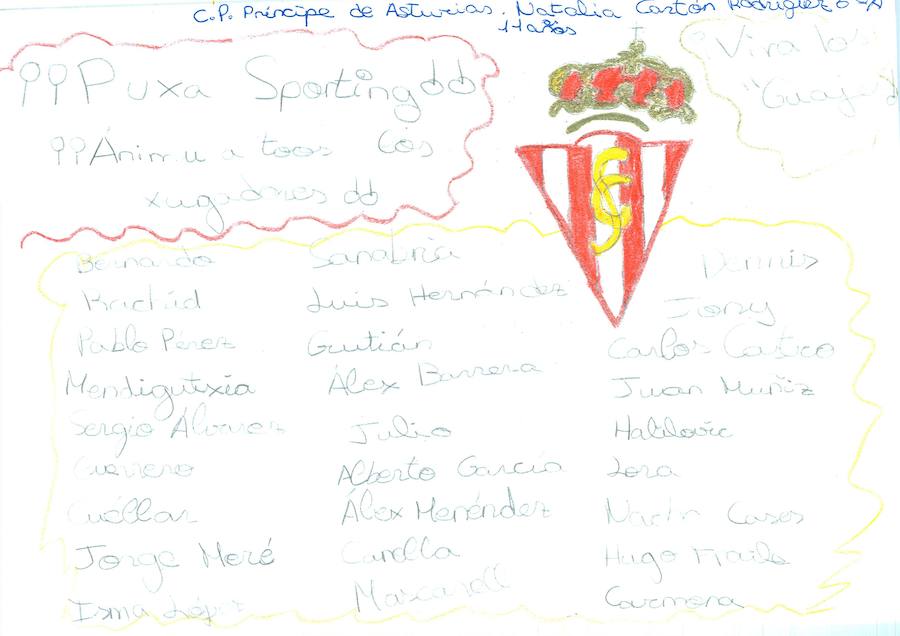 C.P. Príncipe de Asturias. Natalia Castón Rodríguez 6ºA
11 años
¡¡Puxa Sporting!!
¡¡Ánimu a toos los
xugadores!!
Viva los
"Guajes"
SG
Bernardo
Rachid
Pablo Pérez
Mendigutxia
Sergio Álvarez
Guerrero
Cuéllar
Jorge Meré
Isma López
Sanabria
Luis Hernández
Guitián
Álex Barrera
Julio
Alberto García
Álex Menéndez
Canella
Mascarell
Dennis
Jony
Carlos Castro
Juan Muñiz
Halilovic
Lora
Nacho Cases
Hugo Fraile
Carmona